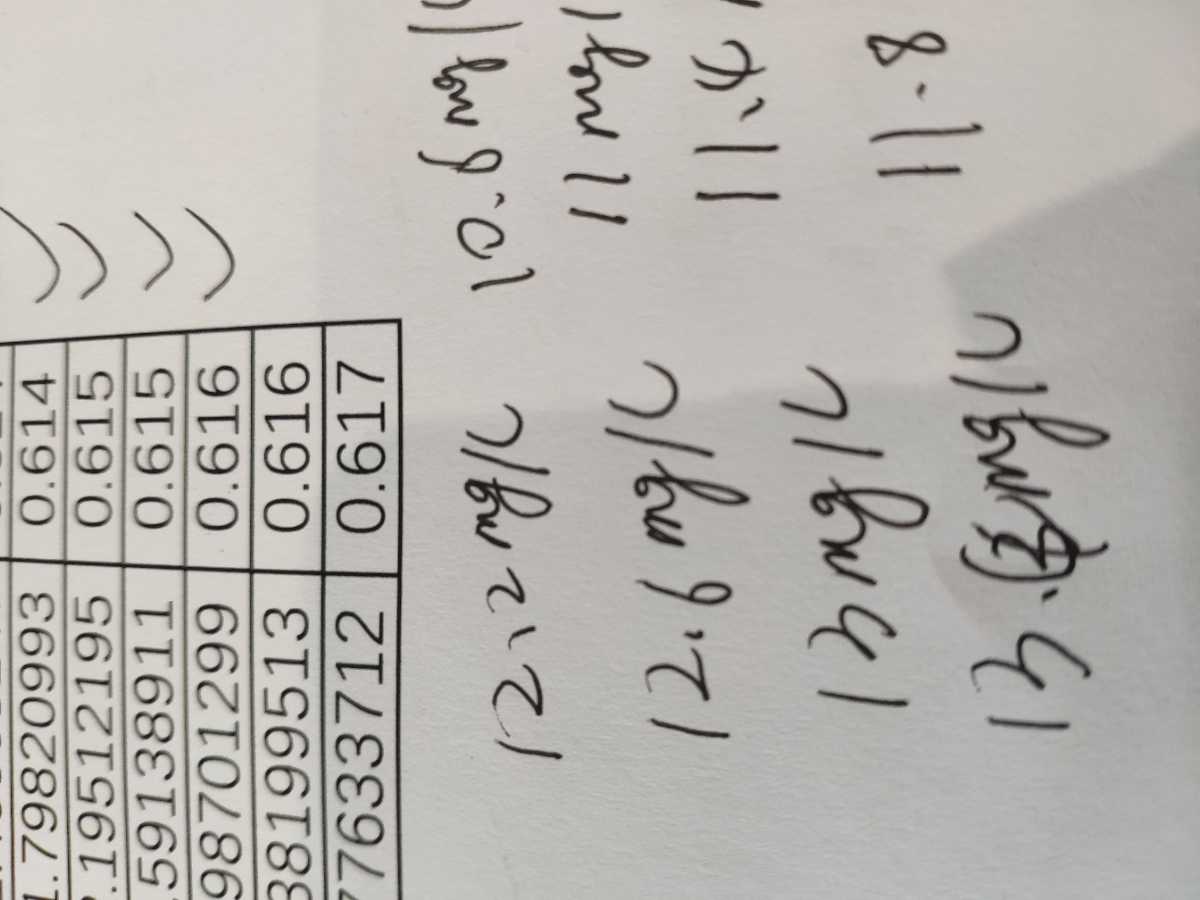 1.79820993 0.614
.19512195 0.615
.59138911 0.615
98701299 0.616
38199513 0.616
77633712 0.617
12.2 mg/L 10.8 mg/
12.6 mg/L 11 mg/
13 mg/L 11.4
13.4 mg/L 11.8